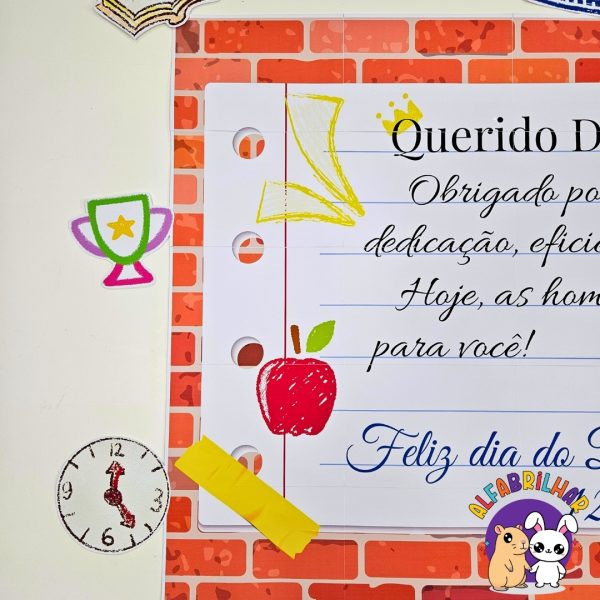 Querido D
Obrigado po
dedicação, efici
Hoje, as hom
para você!
Feliz dia do
12
3
6
9
ALFABRILHAR